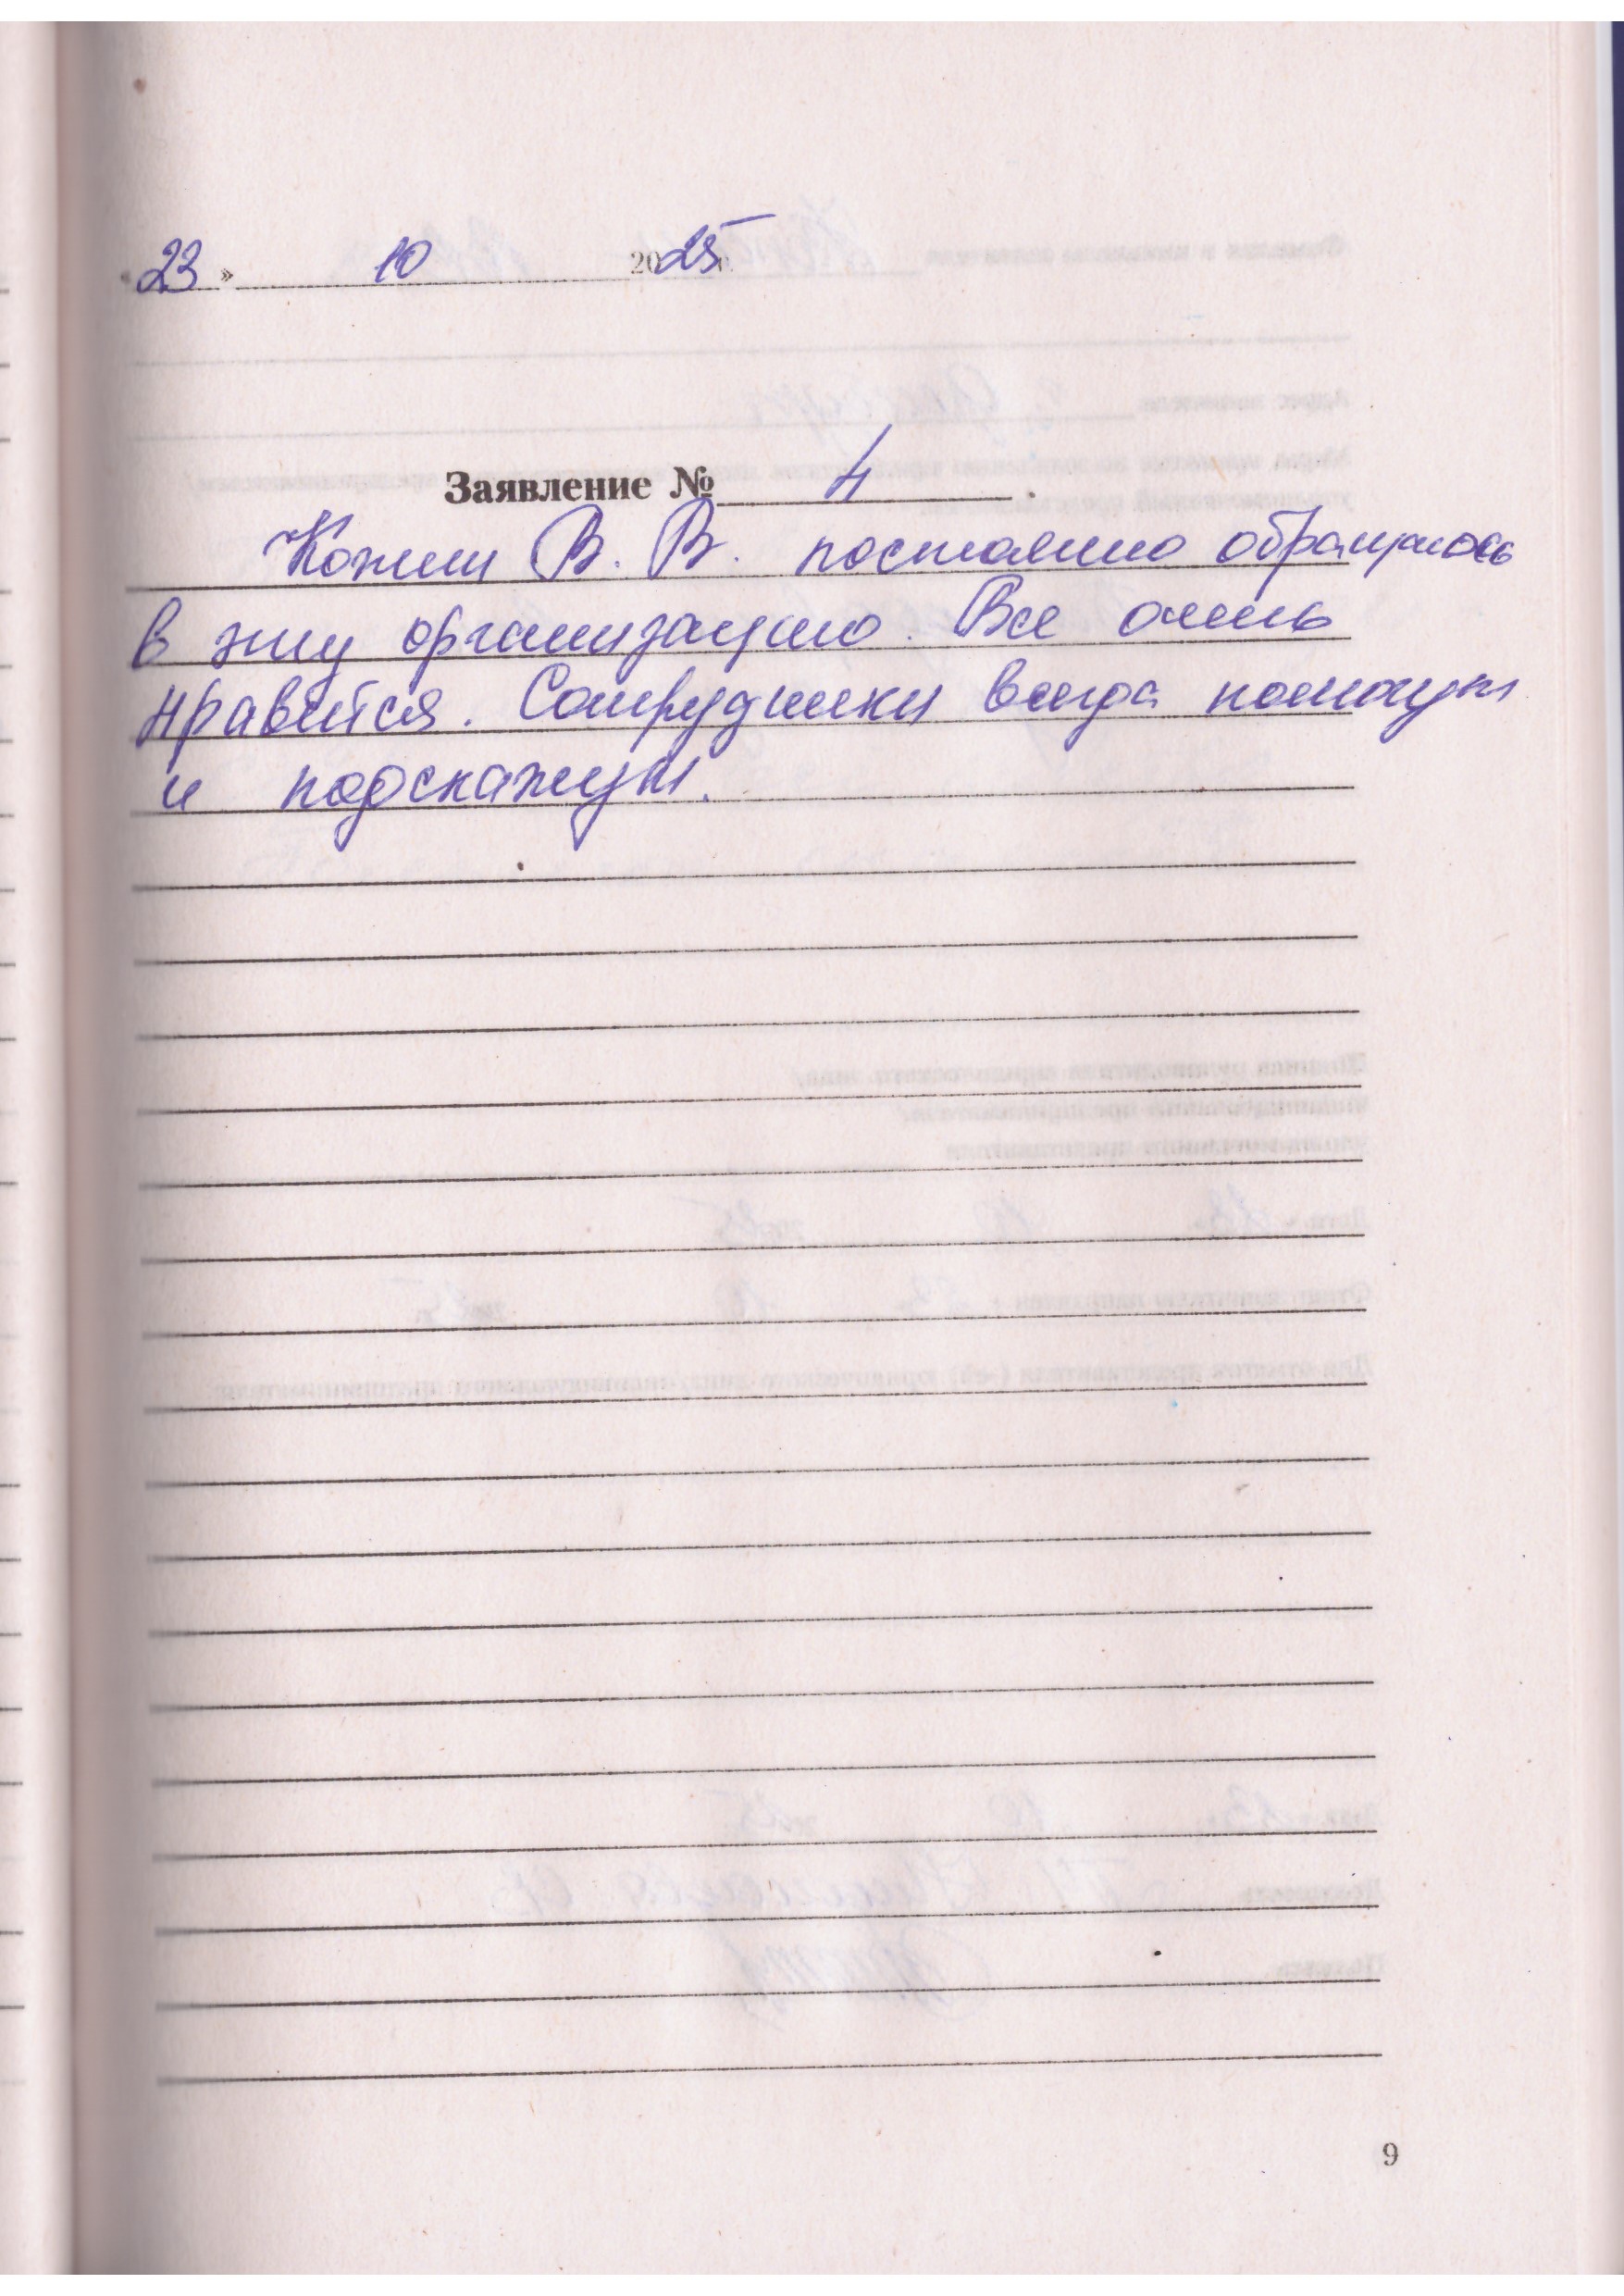 «23» 10 2025г.
Заявление № 4.
Кожин В. В. постоянно обращаюсь
в эту организацию. Все очень
нравится. Сотрудники всегда помогут
и подскажут.
9